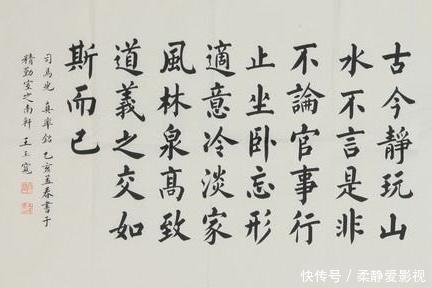 古今靜玩山
水不言是非
不論官事行
止坐卧忘形
適意冷淡家
風林泉高致
道義之交如
斯而已
司馬光真率銘乙亥孟春書于
精勤室之南軒王玉寬
快传号／柔静爱影视